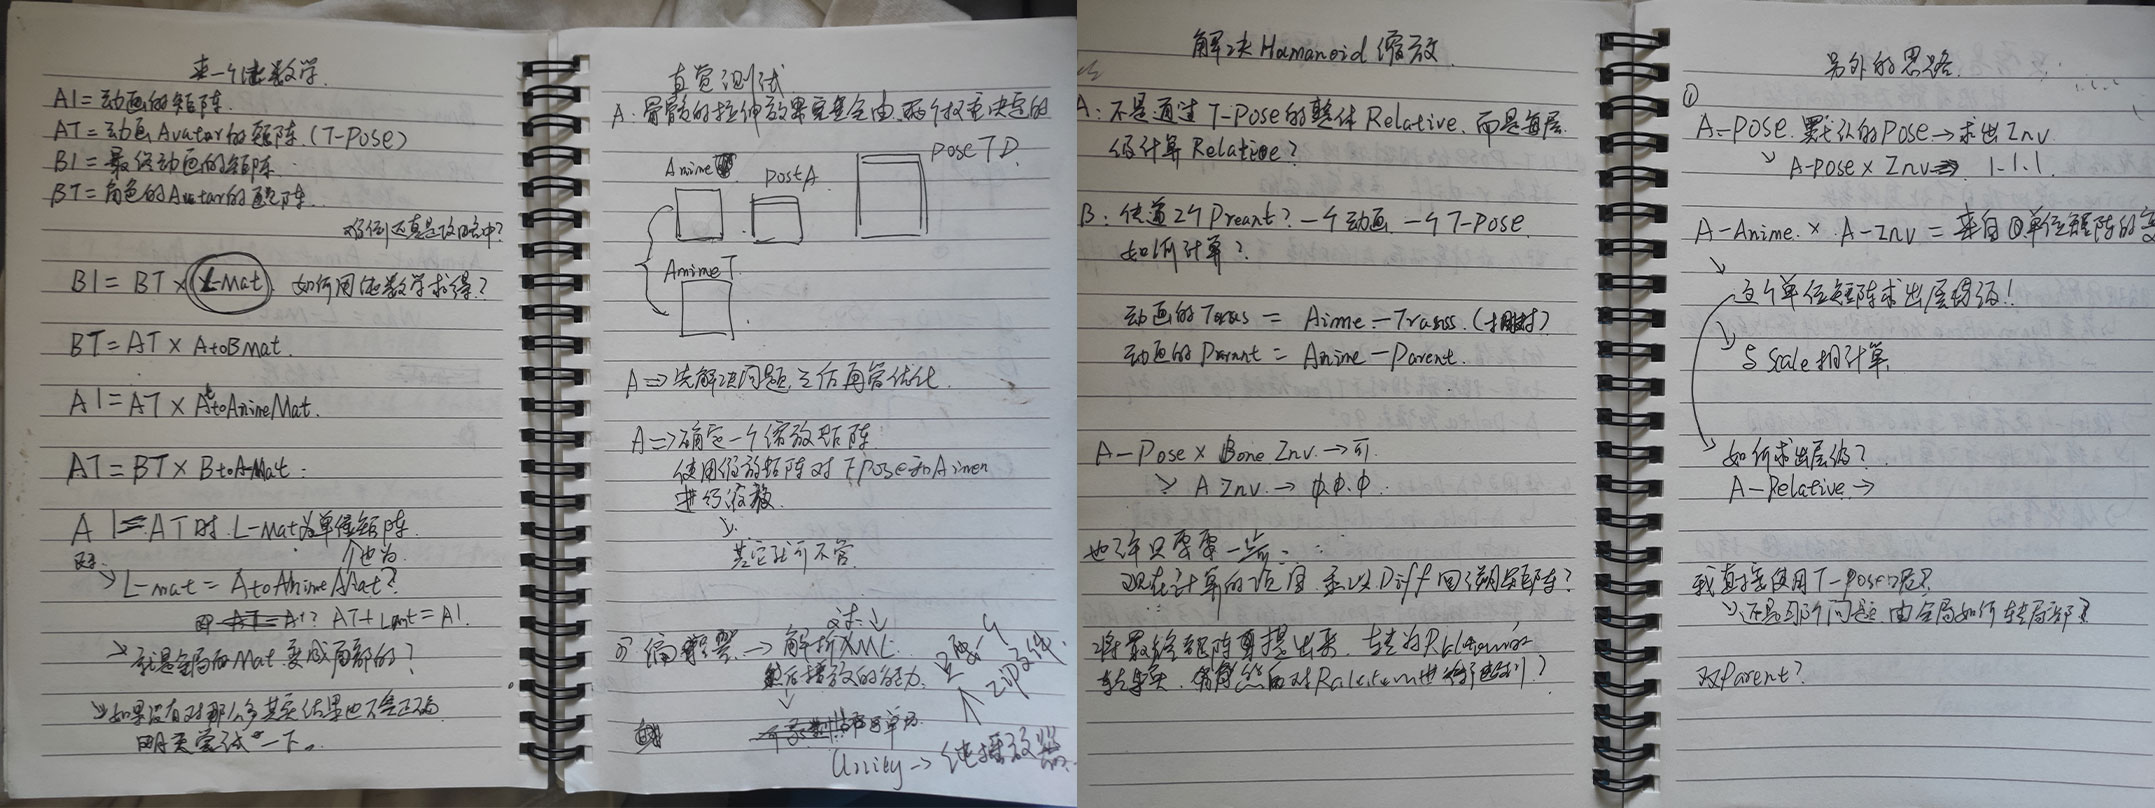 来一个纯数学.
A1=动画的矩阵.
AT=动画Avatar的矩阵.(T-POSE)
B1=最终动画的矩阵.
BT=角色的Avatar的矩阵.
B1=BT×L-Mat 如何用纯数学求得?
BT=AT×AtoBMat.
A1=AT×AtoAnimeMat.
AT=BT×BtoA-Mat.
A1=AT时.L-Mat为单位矩阵.
也为.
L-mat=AtoAnimeMat?
AT+Lmat=A1.
就是全局的Mat变成局部的?
如果没有对那么多其实结果也不会正确
明天尝试一下。
直觉测试
A:骨骼的拉伸效果完全由.两个权重决定的
Anime
PostA
Pose TD.
AnimeT.
A⇒先解决问题,之后再管优化.
A⇒确定一个缩放矩阵
使用缩放矩阵对TPose和Anime
进行缩放.
其它就可不管.
→解析XML.
然后播放的能力.
ZIP文件.
Unity→纯播放器.
解决Humanoid缩放.
A:不是通过T-Pose的整体Relative.而是每层
级计算Relative?
B:伪造2个Preant?一个动画一个T-Pose.
如何计算?
动画的Trans=Anime-Trans.
动画的Parent=Anime-Parent.
A-Pose×Bone Inv.→可.
A Inv.→φ.φ.φ.
也许只需要一点.
现在计算的 乘以Diff回溯矩阵?
将最终矩阵再提出来,转为
另外的思路.
①
A-POSE.默认的Pose→求出Inv
A-pose×Inv⇒1.1.1.
A-Anime.×.A-Inv=来自单位矩阵的
这个单位矩阵求出层级!
与Scale相计算.
如何求出层级?
A-Relative→
我直接使用T-Pose呢?
还是那个问题,由全局如何转局部?
双Parent?